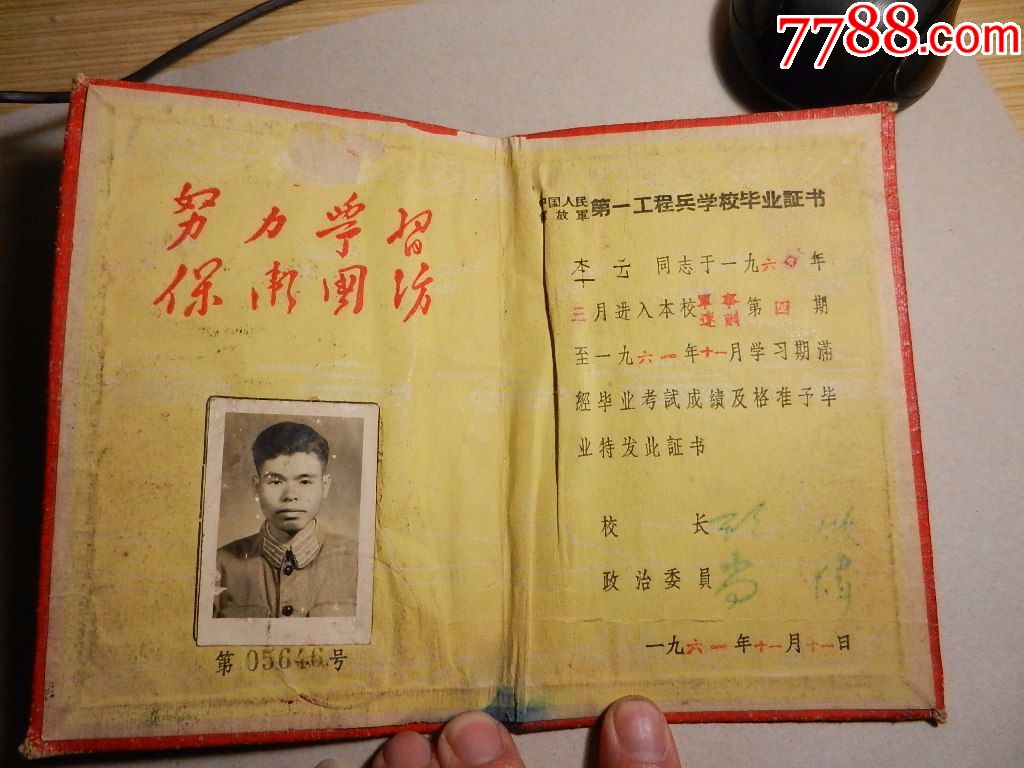 7788.com
努力学習
保衛國防
第05646号
中国人民解放軍第一工程兵学校毕业証书
同志于一九六〇年
三月进入本校軍事連副第四期
至一九六一年十一月学习期滿
經毕业考試成績及格准予毕
业特发此証书
校长
政治委員
一九六一年十一月十一日